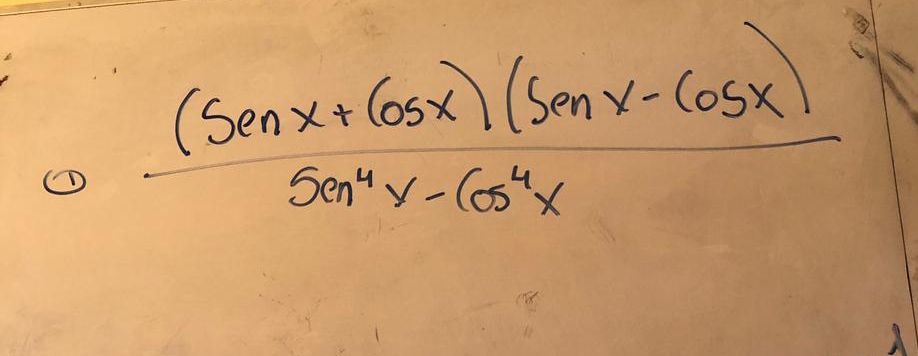 (Sen x + Cosx) (Sen x - Cosx)
① Sen⁴ x - Cos⁴ x